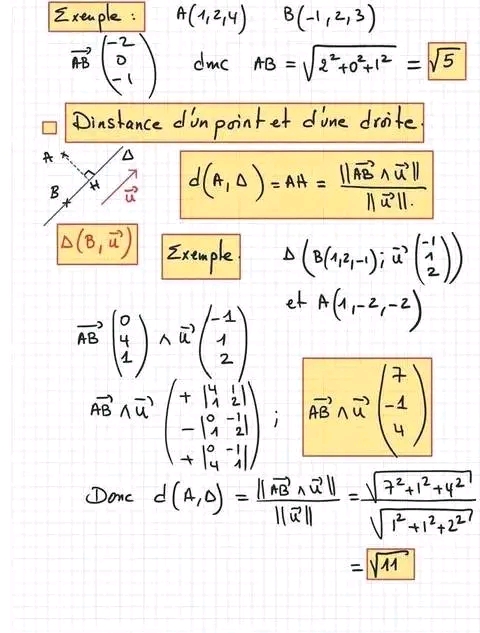 Exemple : A(1,2,4) B(-1,2,3)
$\overrightarrow{AB} \begin{pmatrix} -2 \\ 0 \\ -1 \end{pmatrix}$ donc $AB = \sqrt{2^2+0^2+1^2} = \sqrt{5}$
Dinstance d'un point et d'une droite.
A Δ
B H $\vec{u}$
$d(A,Δ) = AH = \frac{||\overrightarrow{AB} ∧ \vec{u}||}{||\vec{u}||}.$
$Δ(B, \vec{u})$ Exemple. $Δ\left(B(1,2,-1); \vec{u} \begin{pmatrix} -1 \\ 1 \\ 2 \end{pmatrix}\right)$
et A(1,-2,-2)
$\overrightarrow{AB} \begin{pmatrix} 0 \\ 4 \\ 1 \end{pmatrix} ∧ \vec{u} \begin{pmatrix} -1 \\ 1 \\ 2 \end{pmatrix}$
$\overrightarrow{AB} ∧ \vec{u} \begin{pmatrix} + \begin{vmatrix} 4 & 1 \\ 1 & 2 \end{vmatrix} \\ - \begin{vmatrix} 0 & -1 \\ 1 & 2 \end{vmatrix} \\ + \begin{vmatrix} 0 & -1 \\ 4 & 1 \end{vmatrix} \end{pmatrix}$ ; $\overrightarrow{AB} ∧ \vec{u} \begin{pmatrix} 7 \\ -1 \\ 4 \end{pmatrix}$
Donc $d(A,Δ) = \frac{||\overrightarrow{AB} ∧ \vec{u}||}{||\vec{u}||} = \frac{\sqrt{7^2+1^2+4^2}}{\sqrt{1^2+1^2+2^2}}$
$= \sqrt{11}$